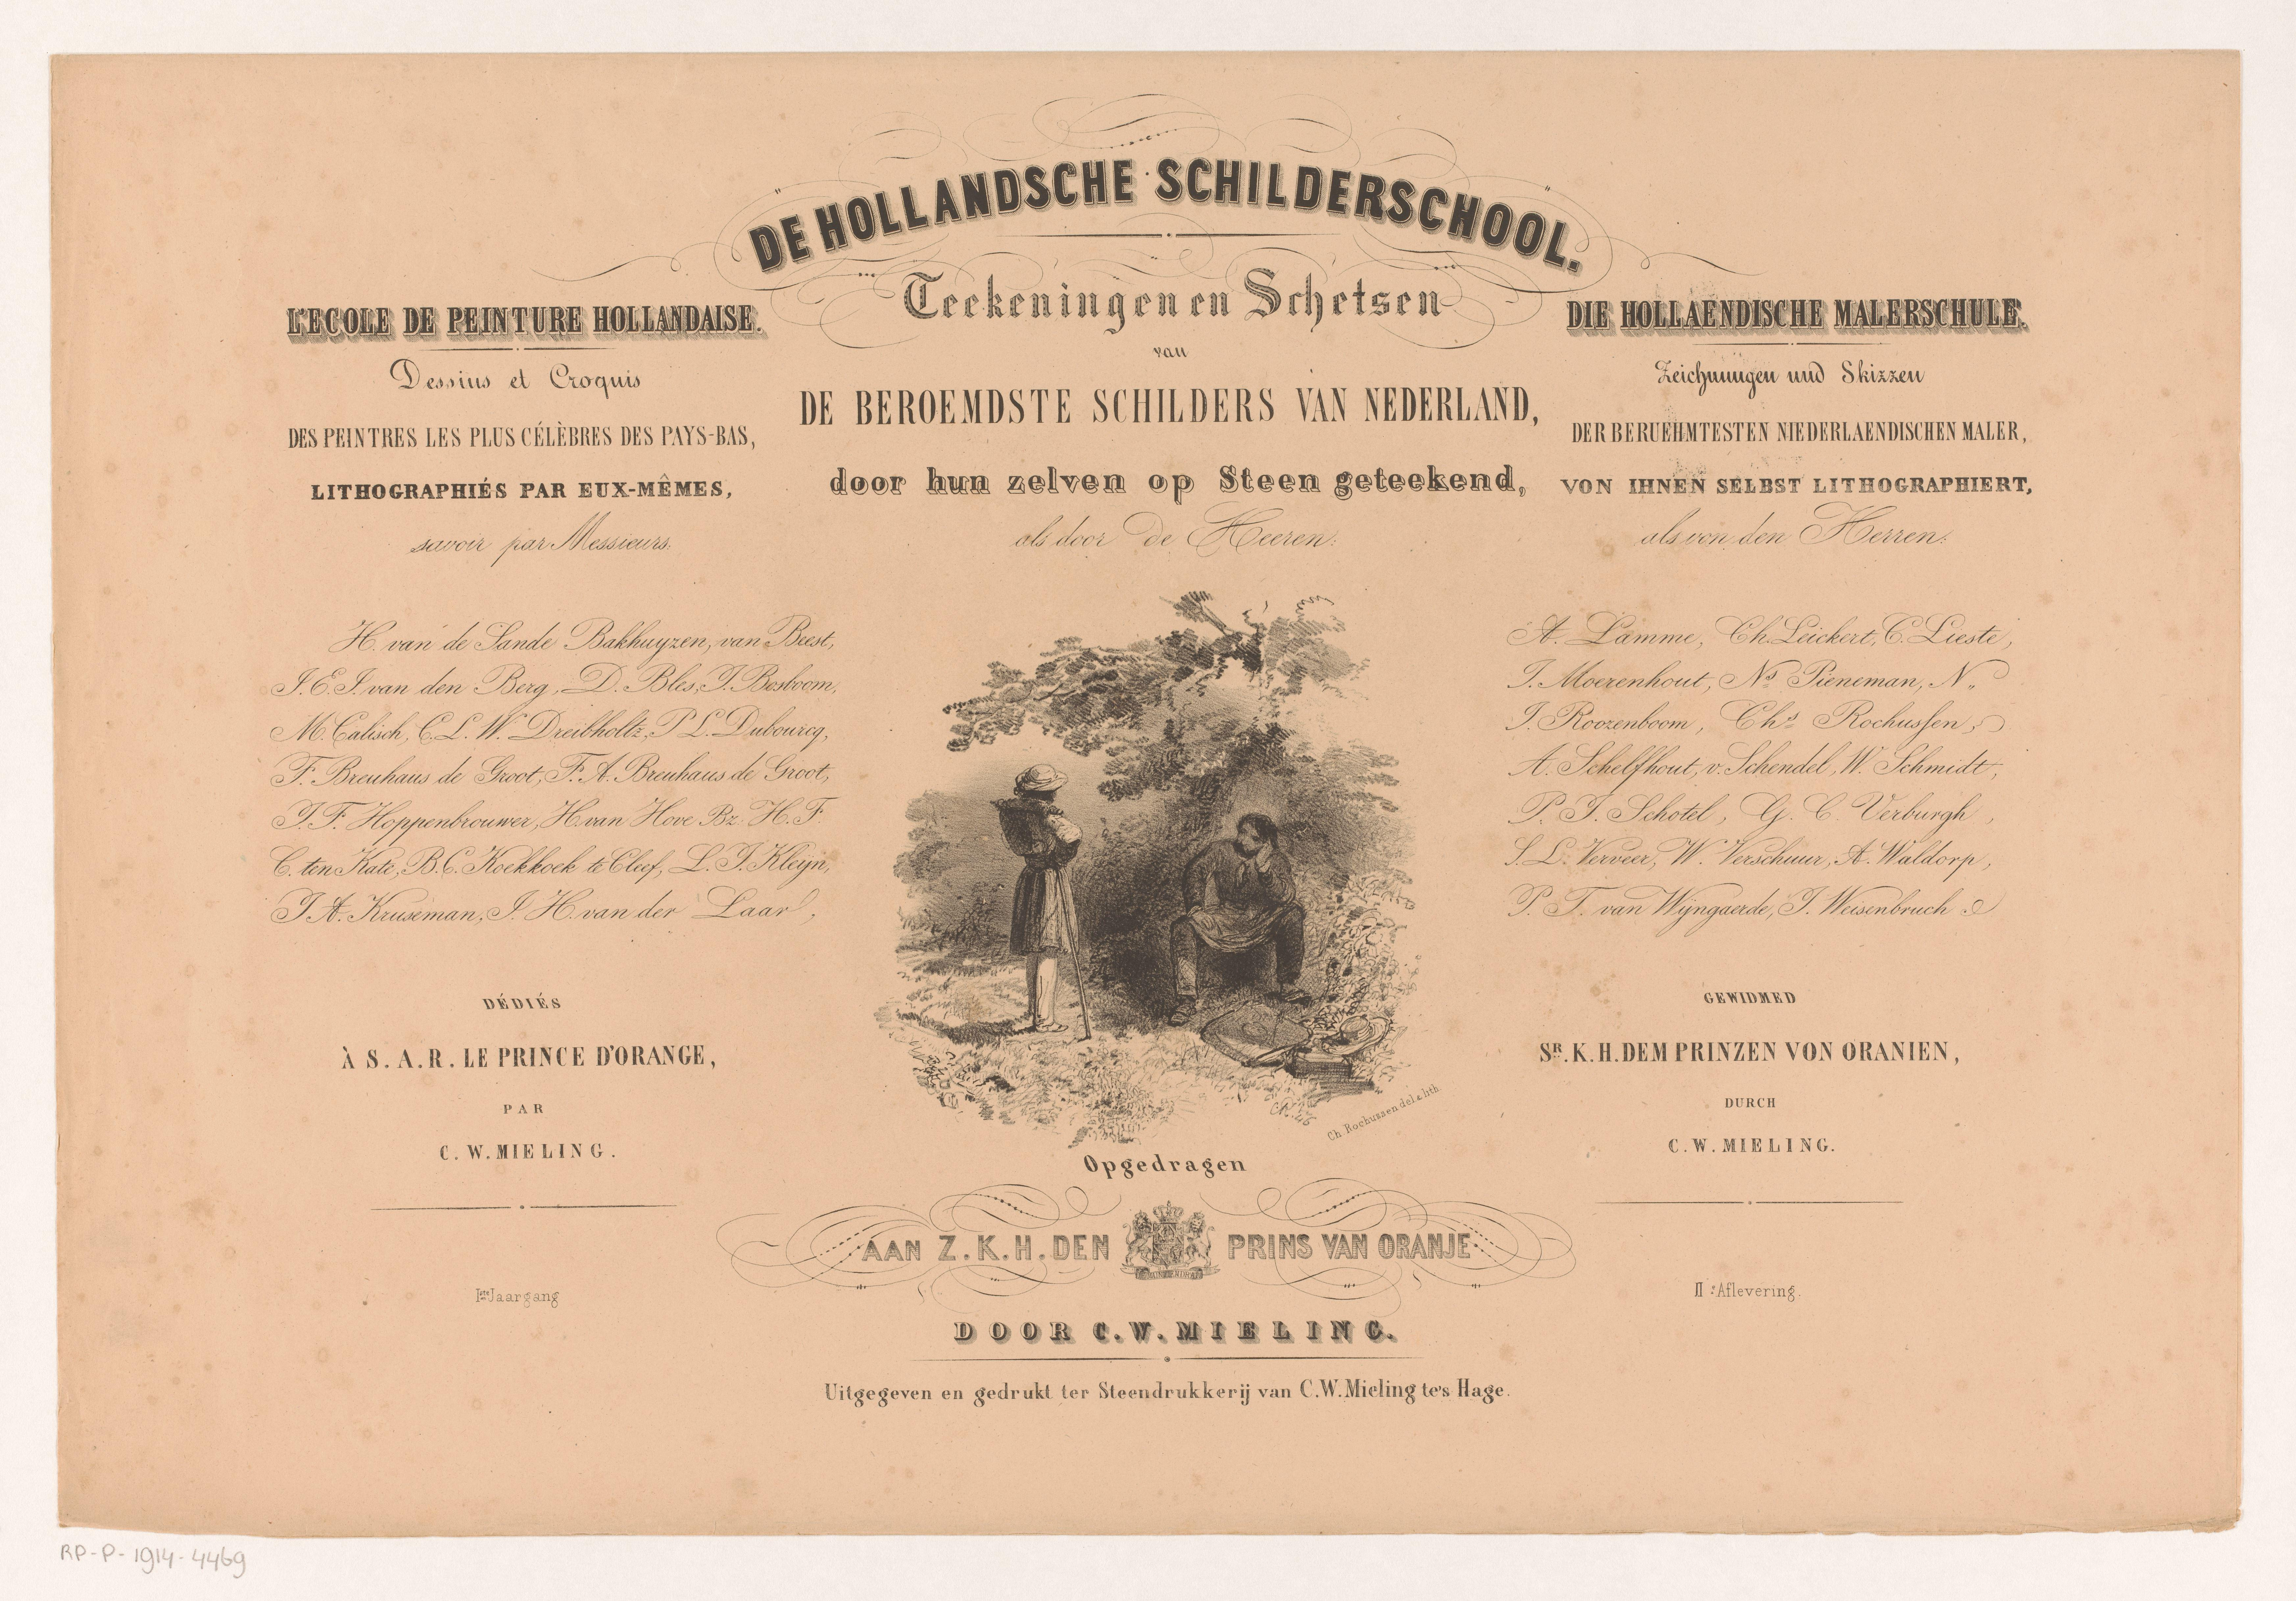 DE HOLLANDSCHE SCHILDERSCHOOL.
Teekeningen en Schetsen
van
DE BEROEMDSTE SCHILDERS VAN NEDERLAND,
door hun zelven op Steen geteekend,
als door de Heeren:
L'ECOLE DE PEINTURE HOLLANDAISE.
Dessins et Croquis
DES PEINTRES LES PLUS CÉLÈBRES DES PAYS-BAS,
LITHOGRAPHIÉS PAR EUX-MÊMES,
savoir par Messieurs:
H. van de Sande Bakhuyzen, van Beest,
J.E.J. van den Berg, D. Bles, J. Bosboom,
M. Calisch, C.L.W. Dreibholtz, P.L. Dubourcq,
F. Breuhaus de Groot, F.A. Breuhaus de Groot,
J.F. Hoppenbrouwer, H. van Hove Bz. H.F.
C. ten Kate, B.C. Koekkoek te Cleef, L.J. Kleijn,
J.A. Kruseman, J.H. van der Laar,
DÉDIÉS
À S.A.R. LE PRINCE D'ORANGE,
PAR
C.W. MIELING.
Iste Jaargang
DIE HOLLAENDISCHE MALERSCHULE.
Zeichnungen und Skizzen
DER BERUEHMTESTEN NIEDERLAENDISCHEN MALER,
VON IHNEN SELBST LITHOGRAPHIERT,
als von den Herren:
A. Lamme, Ch. Leickert, C. Lieste,
J. Moerenhout, Ns Pieneman, N.
J. Roozenboom, Chs Rochussen,
A. Schelfhout, v. Schendel, W. Schmidt,
P.J. Schotel, G.C. Verburgh,
S.L. Verveer, W. Verschuur, A. Waldorp,
P.T. van Wijngaerde, J. Weisenbruch
GEWIDMED
SR. K.H. DEM PRINZEN VON ORANIEN,
DURCH
C.W. MIELING.
II Aflevering.
CR. 46
Ch Rochussen del & lith
Opgedragen
AAN Z.K.H. DEN PRINS VAN ORANJE
DOOR C.W. MIELING.
Uitgegeven en gedrukt ter Steendrukkerij van C.W. Mieling te 's Hage.
RP-P-1914-4469